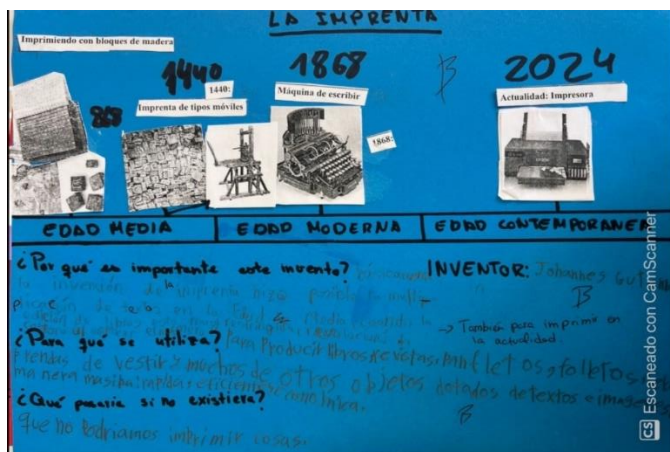 LA IMPRENTA
Imprimiendo con bloques de madera
868
1440
1440:
Imprenta de tipos móviles
1868
Máquina de escribir
1868:
B
2024
Actualidad: Impresora
EDAD MEDIA
EDAD MODERNA
EDAD CONTEMPORANEA
¿Por qué es importante este invento?
la invención de la imprenta hizo posible la
de textos en la
INVENTOR: Johannes Gut
B
¿Para qué se utiliza? Para Producir libros, revistas, panfletos, folletos,
prendas de vestir y muchos de otros objetos dotados de textos e imag
manera masiva, rápida, eficiente y económica.
-> También para imprimir en
la actualidad.
¿Qué pasaría si no existiera?
B
que no Podriamos imbrimir cosas.
CS Escaneado con CamScanner